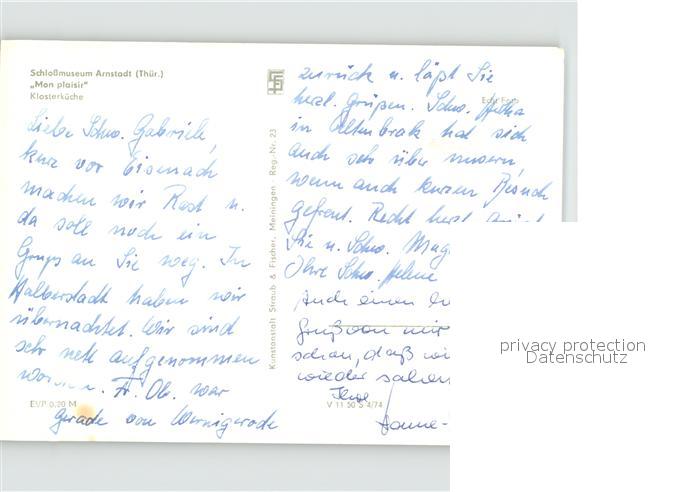 Schloßmuseum Arnstadt (Thür.)
„Mon plaisir"
Klosterküche
Liebe Schw. Gabriele,
kurz vor Eisenach
machen wir Rast u.
da soll noch ein
Gruß an Sie weg. In
Halberstadt haben wir
übernachtet. Wir sind
sehr nett aufgenommen
worden. Fr. Ob. war
gerade von Wernigerode
EVP 0,20 M
Kunstanstalt Straub & Fischer, Meiningen Reg.-Nr. 23
zurück u. läßt Sie
herzl. Grüßen. Schw.
Echt Foto
in Altenbrak hat sich
auch sehr über unsern,
wenn auch kurzen Besuch
gefreut. Recht herzl.
Sie u. Schw.
Ihre Schw. Helene
Auch einen
Gruß von mir
schön, daß wir
wieder sahen
Ihre
Hanne-
V 11 50 S 4/74
privacy protection
Datenschutz